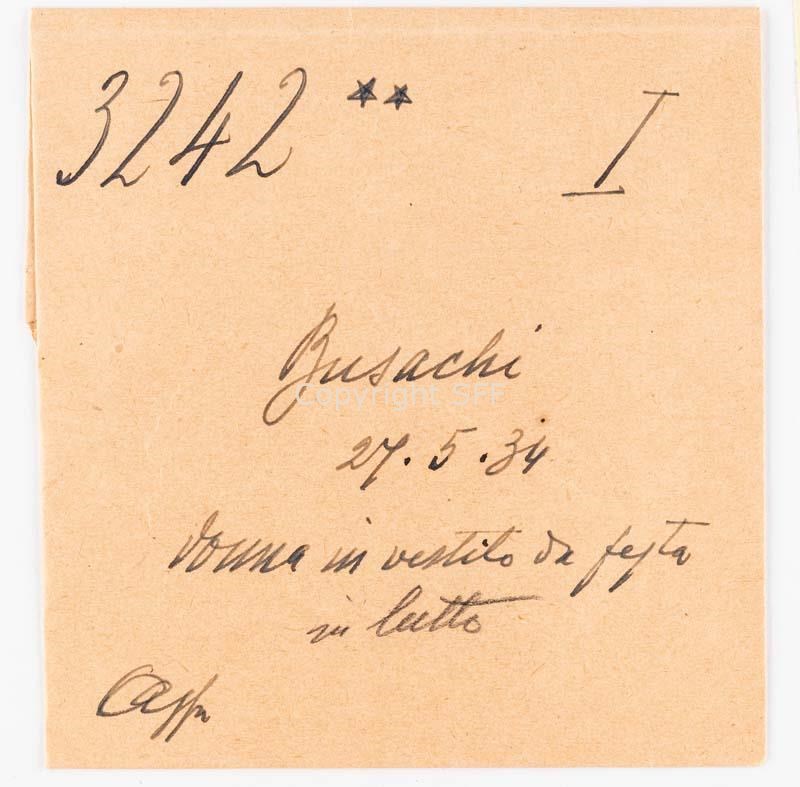 3242 ** I
Busachi
Copyright SFF
27.5.34
donna in vestito da festa
in lutto